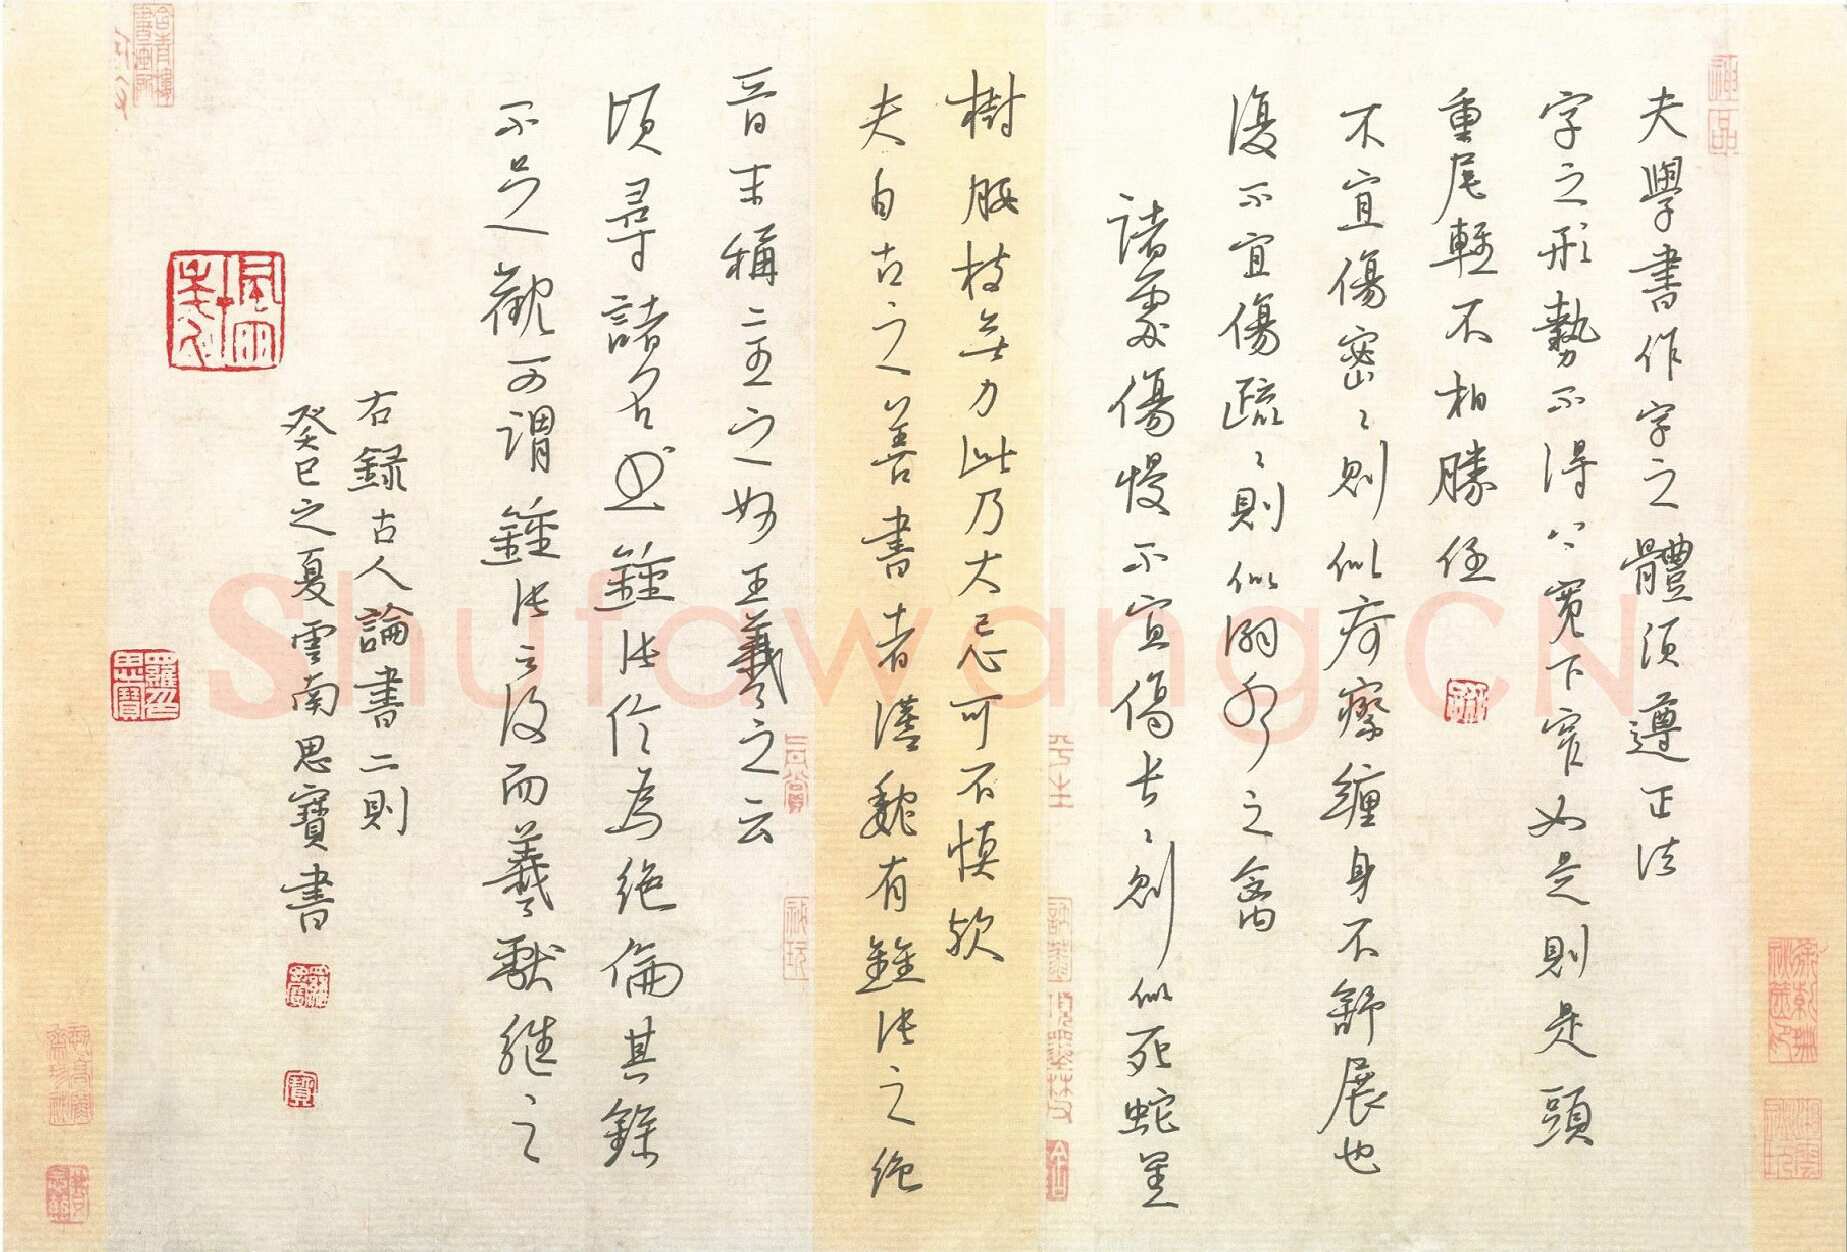 夫學書作字之體須遵正法
字之形勢不得上寬下窄如是則是頭
重尾輕不相勝任
不宜傷密〻則似疴瘵纏身不舒展也
復不宜傷疏〻則似溺水之禽
諸處傷慢不宜傷長〻則似死蛇䍐
樹腰枝無力此乃大忌可不慎歟
夫自古之善書者漢魏有鍾張之絕
晉末稱二王之妙王羲之云
頃尋諸名書鍾張信為絕倫其餘
不足觀可謂鍾張云沒而羲獻繼之
右録古人論書二則
癸巳之夏雲南思寶書
Shufawang.CN